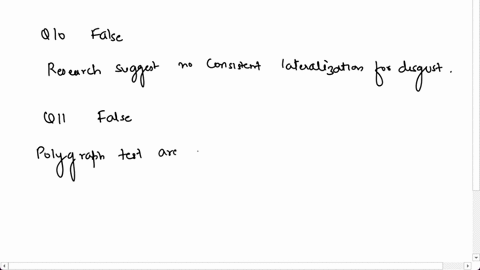 Q10 False
Research suggest no consistent lateralization for disgust.
Q11 False
Polygraph test are